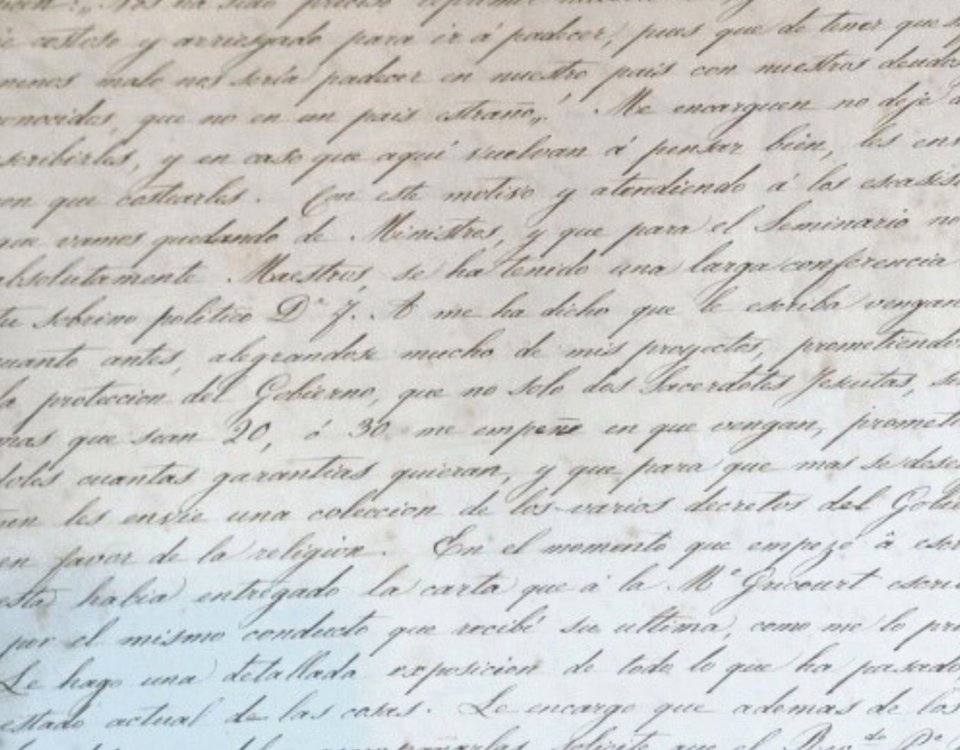 "Nos ha sido preciso
costoso y arriesgado para ir á padecer, pues que de tener que
menos malo nos sería padecer en nuestro pais con nuestros deudos
onocidos, que no en un pais estraño,,! Me encarguen no deje
scribirles, y en caso que aquí vuelvan á pensar bien, les
on que costearles. Con este motivo y atendiendo á los
que vamos quedando de Ministros, y que para el Seminario no
absolutamente Maestros, se ha tenido una larga conferencia
tu sobrino politico Dn J. A me ha dicho que le escriba vengan
uanto antes, alegrandose mucho de mis proyectos, prometiendo
la proteccion del Gobierno, que no solo dos Sacerdotes Jesuitas,
mas que sean 20, ó 30 me empeñe en que vengan, prometi
doles cuantas garantias quieran, y que para que mas se
en les envie una coleccion de los varios decretos del Gobie
en favor de la religion. En el momento que empezé á escri
esta habia entregado la carta que á la Me Gricourt escri
por el mismo conducto que recibí su ultima, como me lo pre
Le hago una detallada exposicion de todo lo que ha pasado
estado actual de las cosas. Le encargo que ademas de los
solicite que el